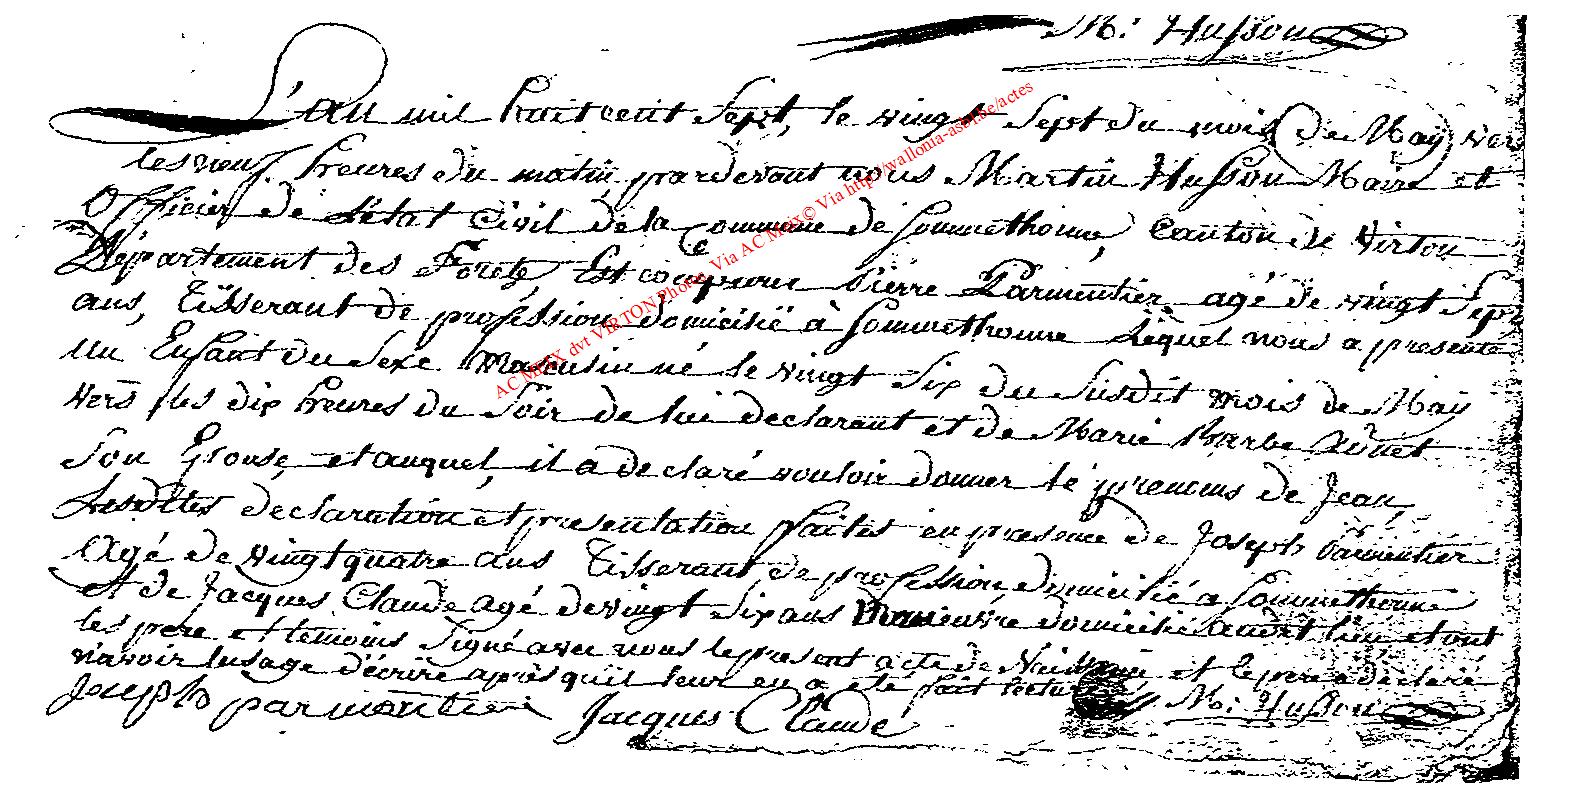 M: Husson
L'an mil huit cent Sept, le vingt Sept du mois de May ver
les neuf heures du matin pardevant nous Martin Husson Maire et
Officier de L'état Civil de la Commune de Sommethonne, Canton de Virton
Département des Forêts, Est comparu Pierre Parmentier agé de vingt Sept
ans, Tisserant de profession domicilié à Sommethonne Lequel nous a presenté
un Enfant du Sexe Masculin né le vingt Six du Susdit mois de May
vers les dix heures du Soir de lui declarant et de Marie Barbe
Son Epouse, et auquel, il a declaré vouloir donner le prenoms de Jean,
Lesdites declaration et presentation faites en presence de Joseph Parmentier
Agé de vingt quatre ans Tisserant de profession, domicilié a Sommethonne
et de Jacques Claude agé de vingt Six ans Manoeuvre domicilié audit lieu, et ont
les pere et temoins Signé avec nous le present acte de Naissance et le pere a declaré
n'avoir lusage d'écrire après qu'il leur en a eté fait lecture
Joseph parmentier Jacques Claude M: Husson
AC MEIX dvt VIRTON Photos Via AC Meix© Via http://wallonia-asbl.be/actes